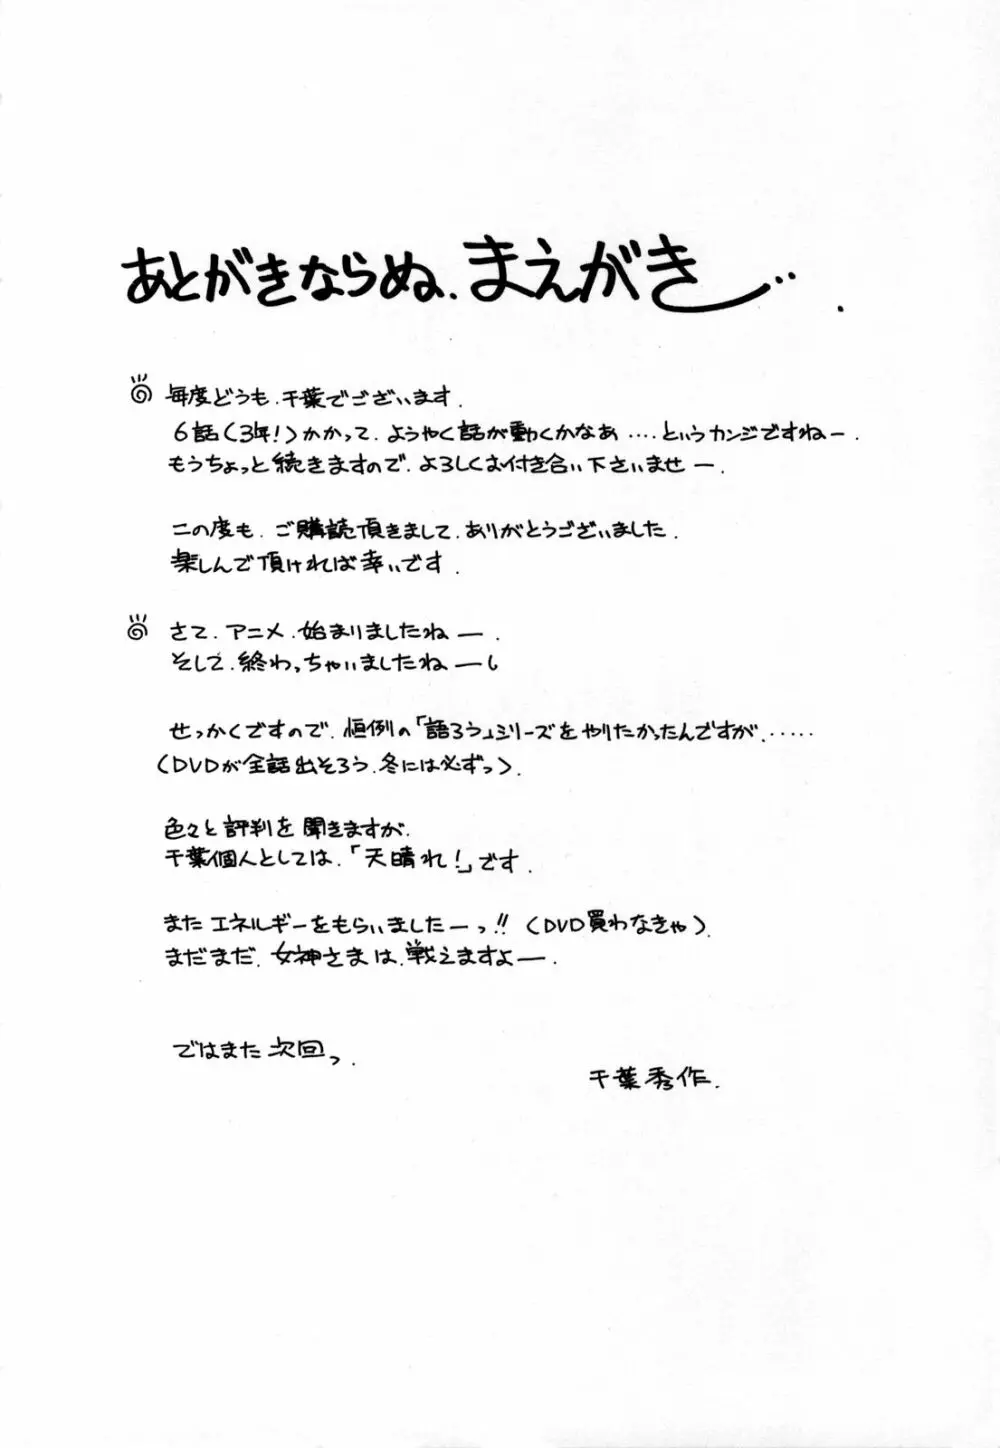 あとがきならぬ、まえがき…．
毎度どうも、千葉でございます．
6話（3年！）かかって、ようやく話が動くかなぁ‥‥というカンジですねー．
もうちょっと続きますので、よろしくお付き合い下さいませー．
この度も、ご購読頂きまして、ありがとうございました．
楽しんで頂ければ幸いです．
さて、アニメ、始まりましたねー．
そして、終わっちゃいましたねー．
せっかくですので、恒例の「語ろう」シリーズをやりたかったんですが‥‥‥
（DVDが全話出そろう、冬には必ずっ）．
色々と評判を聞きますが、
千葉個人としては、「天晴れ！」です．
またエネルギーをもらいましたーっ!!（DVD買わなきゃ）．
まだまだ、女神さまは、戦えますよー．
ではまた次回っ．
千葉秀作．